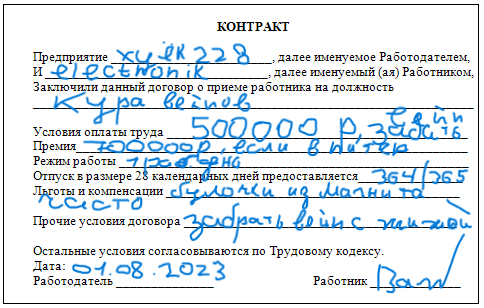 КОНТРАКТ
Предприятие хуйк 228, далее именуемое Работодателем,
И electronik, далее именуемый (ая) Работником,
Заключили данный договор о приеме работника на должность
Кура вейпов
Условия оплаты труда 500000 р, забрать вейп
Премия 700000р, если в питер
Режим работы
Отпуск в размере 28 календарных дней предоставляется 364/365
Льготы и компенсации булочки из магнита
часто
Прочие условия договора забрать вейп с жижой
Остальные условия согласовываются по Трудовому кодексу.
Дата: 01.08.2023
Работодатель Работник